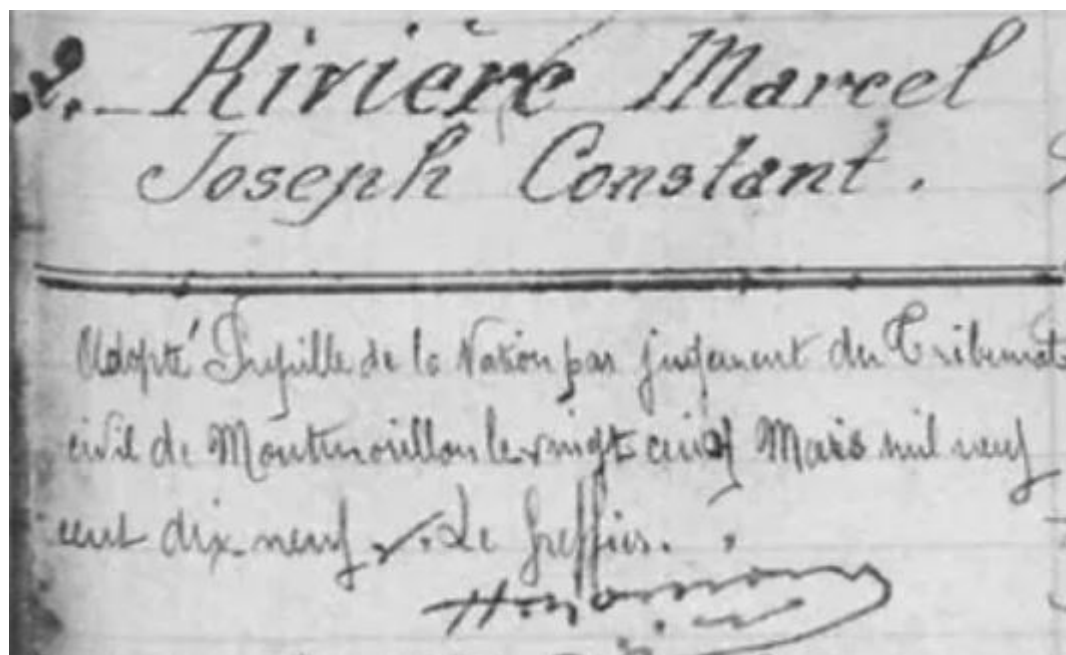 2. Rivière Marcel
Joseph Constant.
Adopté Pupille de la Nation par jugement du Tribunal
civil de Montmorillon le vingt cinq Mars mil neuf
cent dix-neuf. Le Greffier.